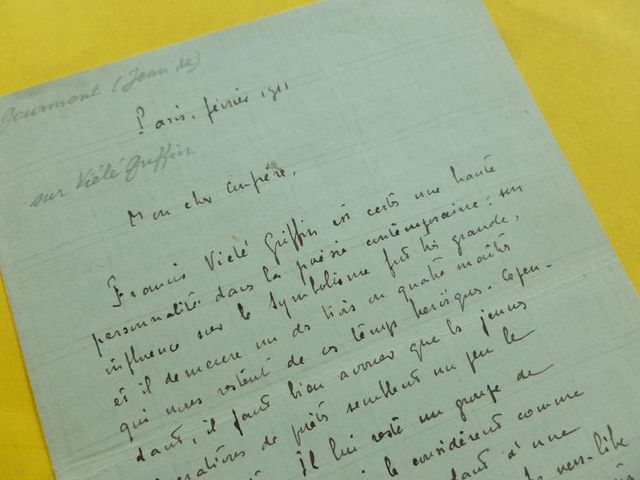 Gourmont (Jean de)
Paris, février 1911
sur Viélé Griffin
Mon cher confrère,
Francis Vielé Griffin est certes une haute
personnalité dans la poésie contemporaine : son
influence sur le Symbolisme fut très grande,
et il demeure un des trois ou quatre maîtres
qui nous restent de ces temps héroïques. Cepen-
dant, il faut bien avouer que les jeunes
générations de poètes semblent un peu le
Il lui reste un groupe de
le considèrent comme
à une
vers-libe